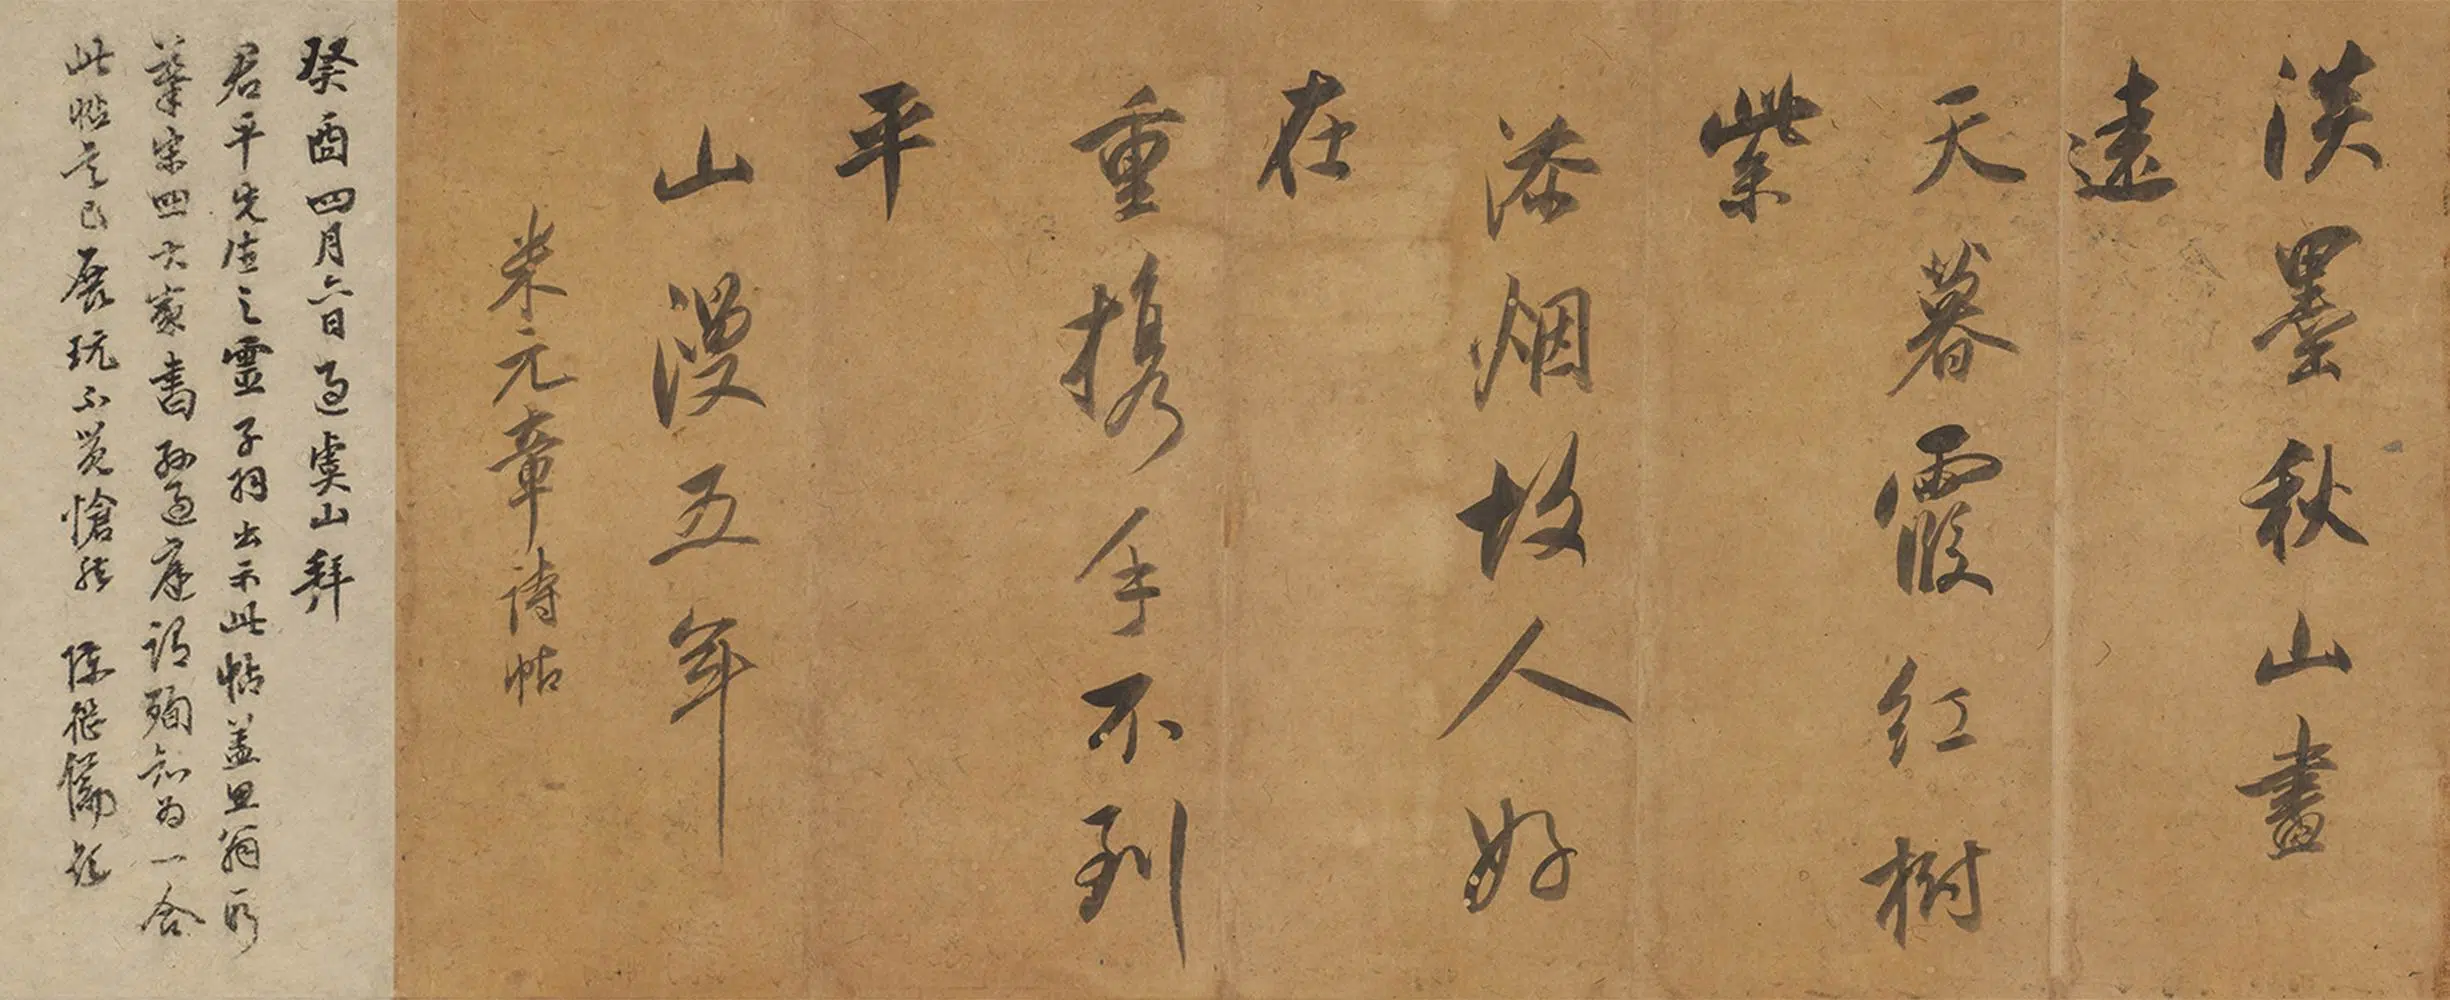 淡墨秋山畫
遠
天暮霞紅樹
紫
添烟故人好
在
重携手不到
平
山漫五年
米元章詩帖
癸酉四月六日過虞山拜
君平先生之靈子羽出示此帖蓋思翁所
摹宋四大家書孫過庭謂殉知為一合
此帖是已展玩不覺愴然 陳繼儒題